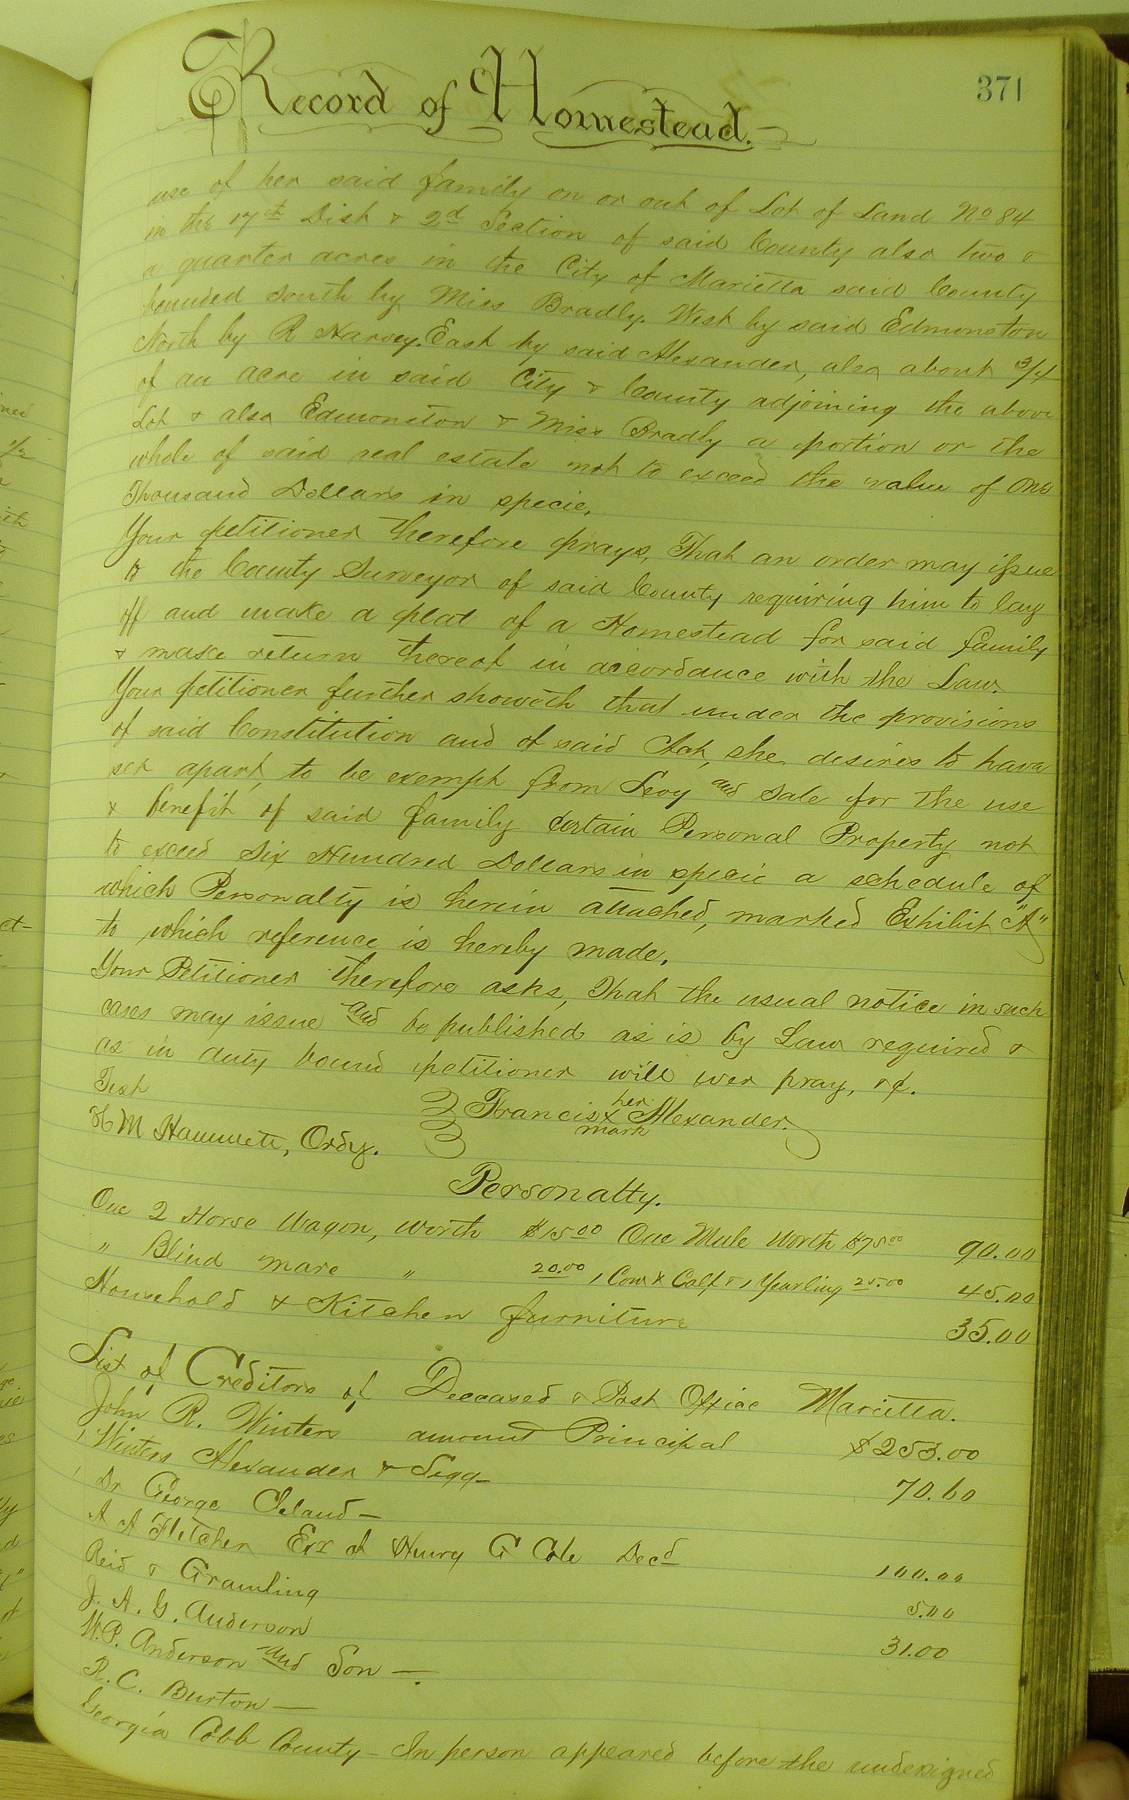 371
Record of Homestead.
use of her said family on or out of Lot of Land No 84
in the 17th Dist & 2d Section of said County also two &
a quarter acres in the City of Marietta said County
bounded South by Miss Bradly. West by said Edmonston
North by R Harvey. East by said Alexander, also about 3/4
of an acre in said City & County adjoining the above
Lot & also Edmonston & Miss Bradly a portion or the
whole of said real estate not to exceed the value of One
Thousand Dollars in specie.
Your petitioner therefore prays, That an order may issue
to the County Surveyor of said County requiring him to lay
off and make a plat of a Homestead for said family
& make return thereof in accordance with the Law.
Your petitioner further showeth that under the provisions
of said Constitution and of said Act, she desires to have
set apart, to be exempt from Levy and Sale for the use
& benefit of said family certain Personal Property not
to exceed Six Hundred Dollars in specie a schedule of
which Personalty is herein attached, marked Exhibit "A"
to which reference is hereby made.
Your Petitioner therefore asks, That the usual notice in such
cases may issue and be published as is by Law required &
as in duty bound petitioner will ever pray, &c.
Test
Francis her x mark Alexander.
H M Hammett, Ordy.
Personalty.
One 2 Horse Wagon, worth $15.00 One Mule Worth $75.00 90.00
" Blind mare " 20.00 1 Cow & Calf & 1 Yearling 25.00 45.00
Household & Kitchen furniture 35.00
List of Creditors of Deceased & Post Office Marietta.
John R. Winters amount Principal $253.00
Winters Alexander & 70.60
Dr George
A A Fletcher Exr of Henry G Cole Decd 100.00
Reid & Gramling 5.00
J. A. G. Anderson 31.00
W.P. Anderson and Son —
R. C. Burton —
Georgia Cobb County — In person appeared before the undersigned